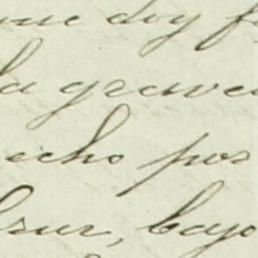 que doy f
la grave
echo por
sur, bajo